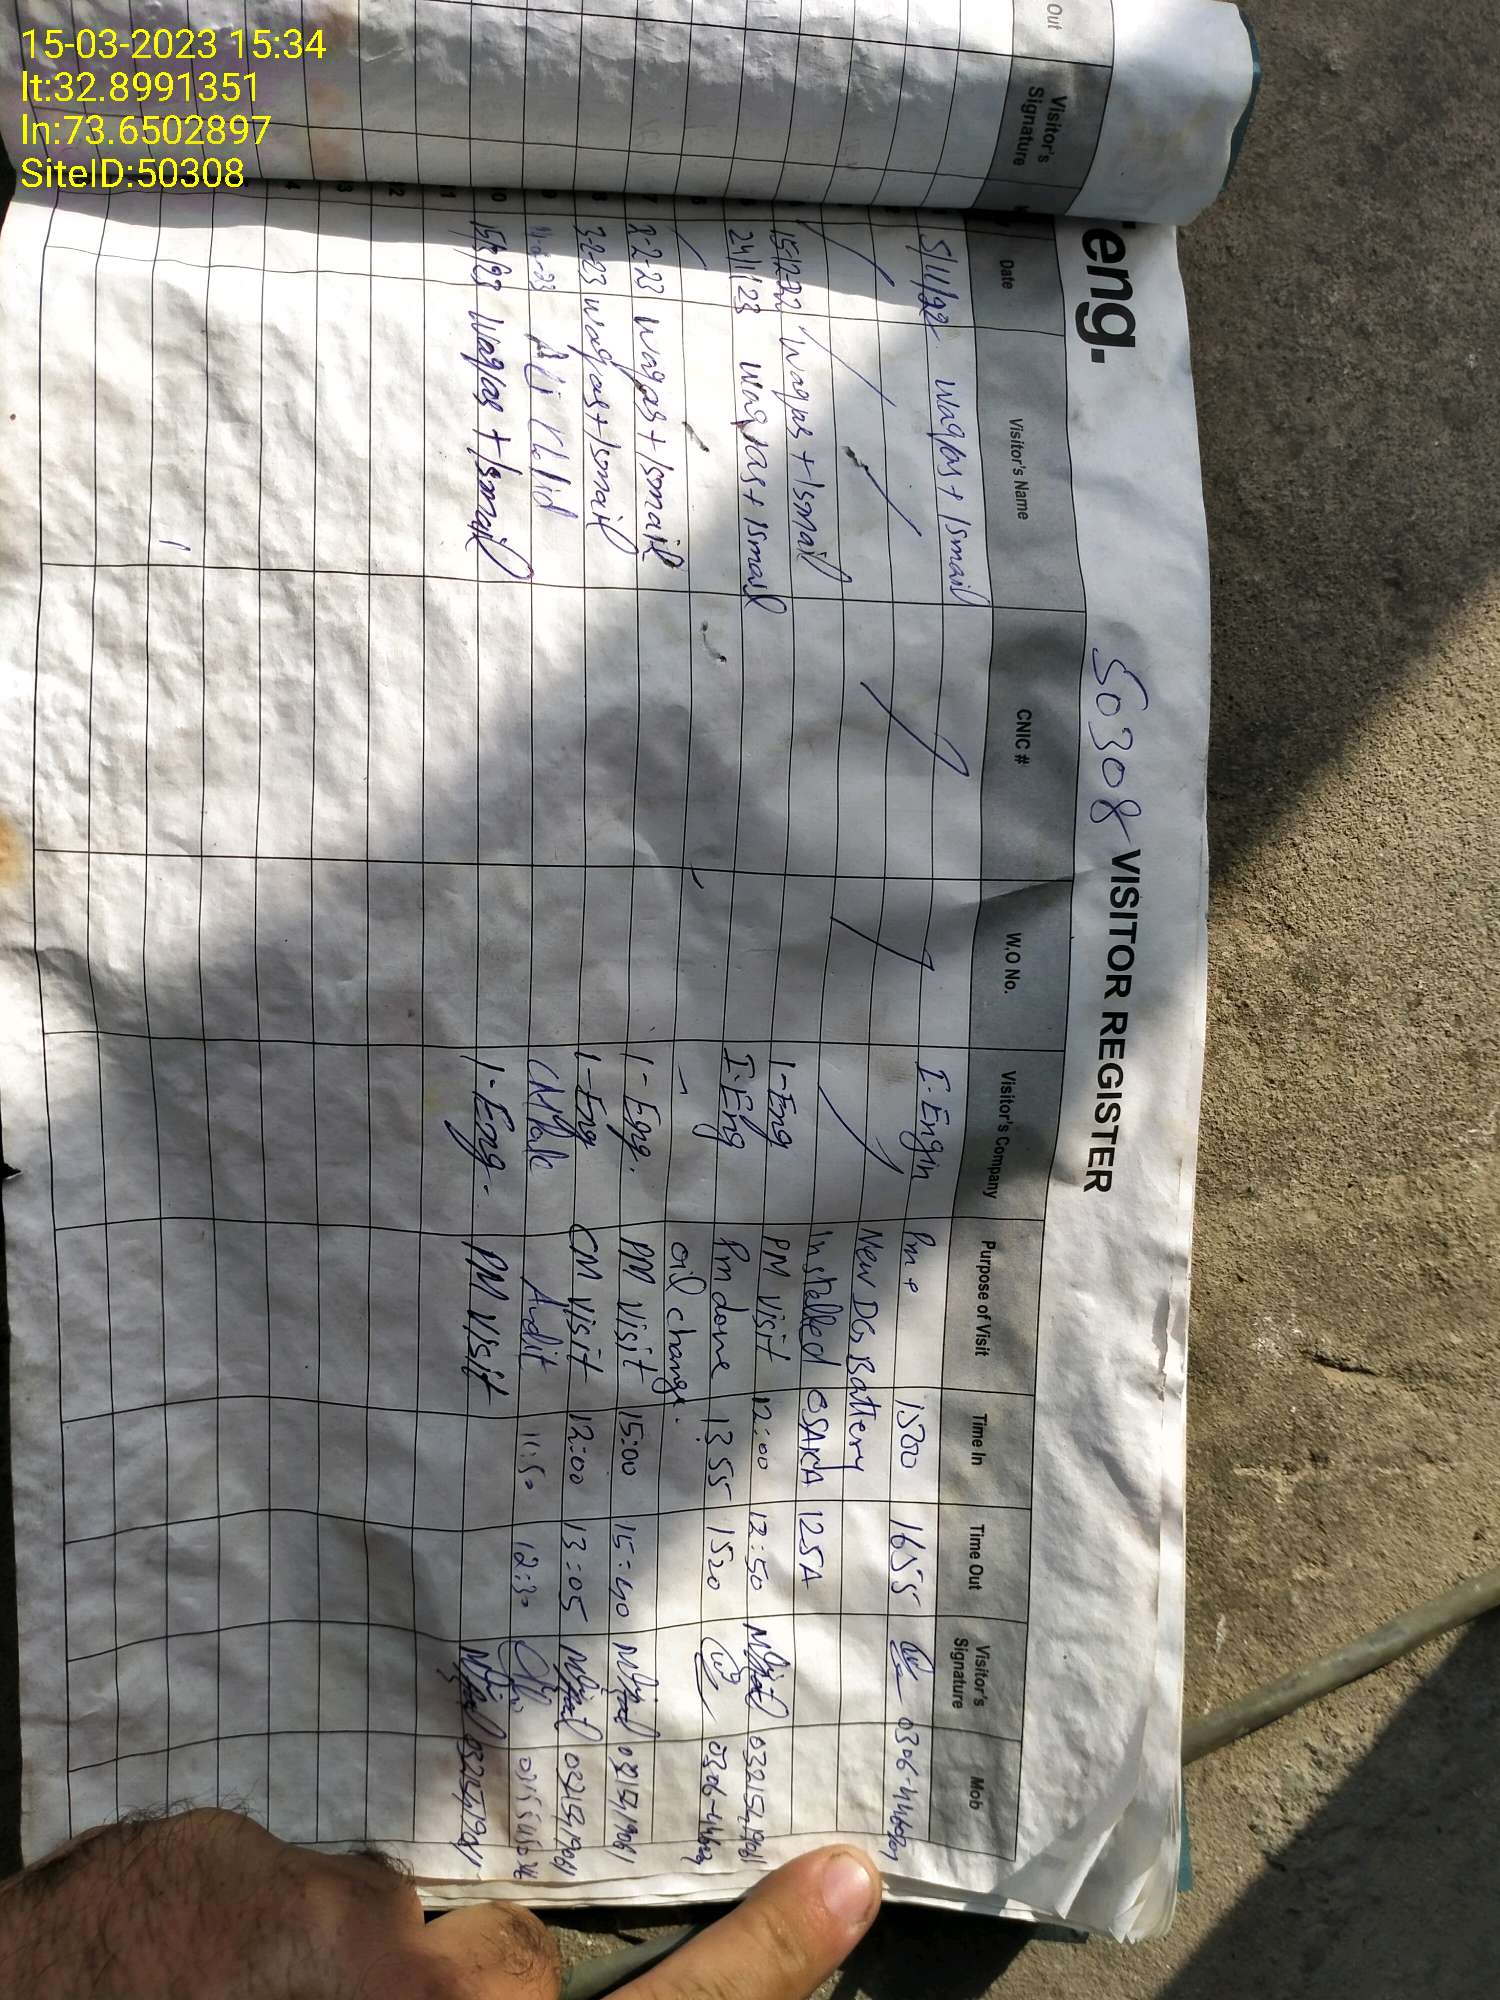 15-03-2023 15:34
lt:32.8991351
ln:73.6502897
SiteID:50308
Out Visitor's Signature
eng.
50308 VISITOR REGISTER
Date Visitor's Name CNIC # W.O No. Visitor's Company Purpose of Visit Time In Time Out Visitor's Signature Mob
5/11/22 Waqas + Ismail I. Engin Pm + 1500 1655
New DG Battery
Installed OSAKA 125A
15-12-22 Waqas + Ismail I-Eng PM Visit 12:00 12:50
24/1/23 Waqas + Ismail I.Eng Pm done 1355 1520
oil change.
2-2-23 Waqas + Ismail I-Eng. PM Visit 15:00 15:40
3-2-23 Waqas + Ismail I-Eng CM Visit 12:00 13:05
Ali Khalid CMPak Audit 11:50 12:30
15/3/23 Waqas + Ismail I-Eng. PM Visit